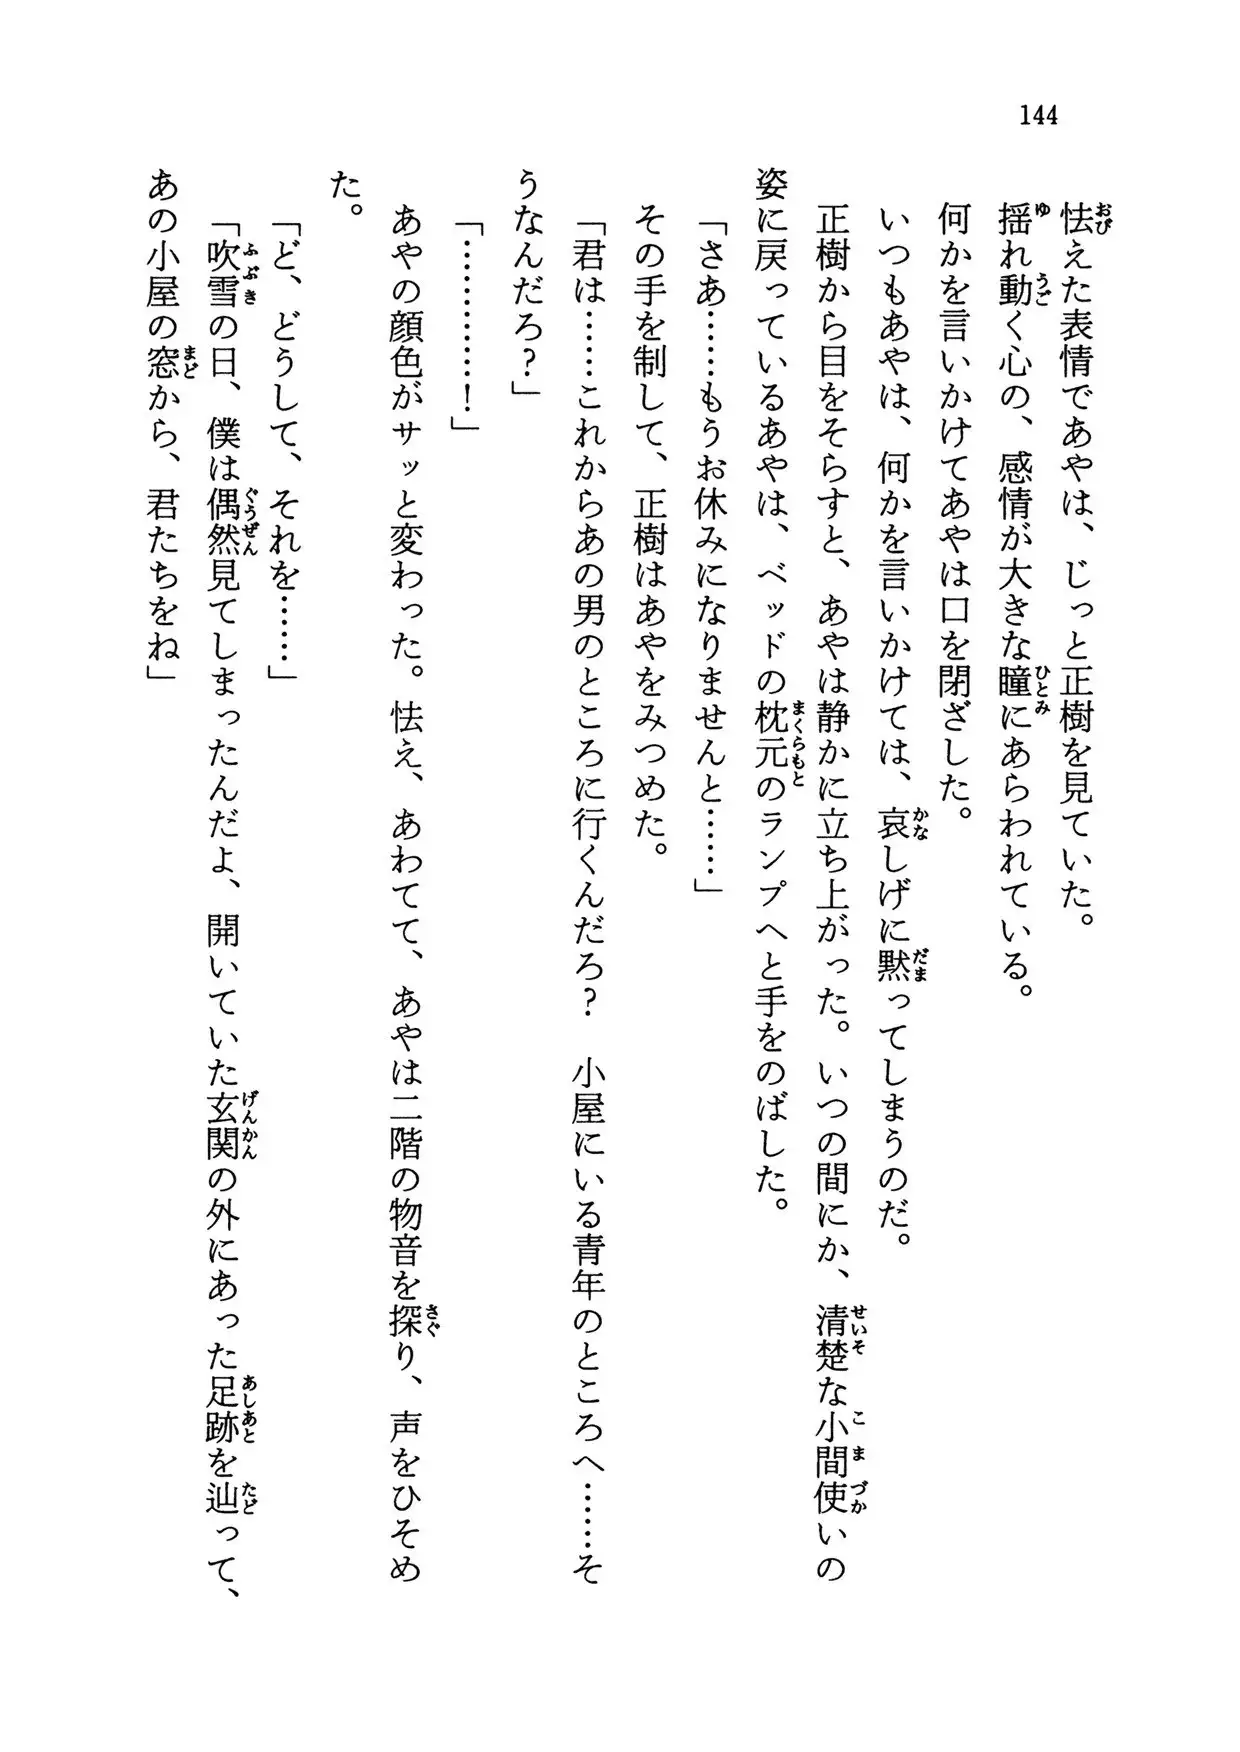 144
怯えた表情であやは、じっと正樹を見ていた。
揺れ動く心の、感情が大きな瞳にあらわれている。
何かを言いかけてあやは口を閉ざした。
いつもあやは、何かを言いかけては、哀しげに黙ってしまうのだ。
正樹から目をそらすと、あやは静かに立ち上がった。いつの間にか、清楚な小間使いの
姿に戻っているあやは、ベッドの枕元のランプへと手をのばした。
「さあ……もうお休みになりませんと……」
その手を制して、正樹はあやをみつめた。
「君は……これからあの男のところに行くんだろ?　小屋にいる青年のところへ……そ
うなんだろ?」
「…………!」
あやの顔色がサッと変わった。怯え、あわてて、あやは二階の物音を探り、声をひそめ
た。
「ど、どうして、それを……」
「吹雪の日、僕は偶然見てしまったんだよ、開いていた玄関の外にあった足跡を辿って、
あの小屋の窓から、君たちをね」